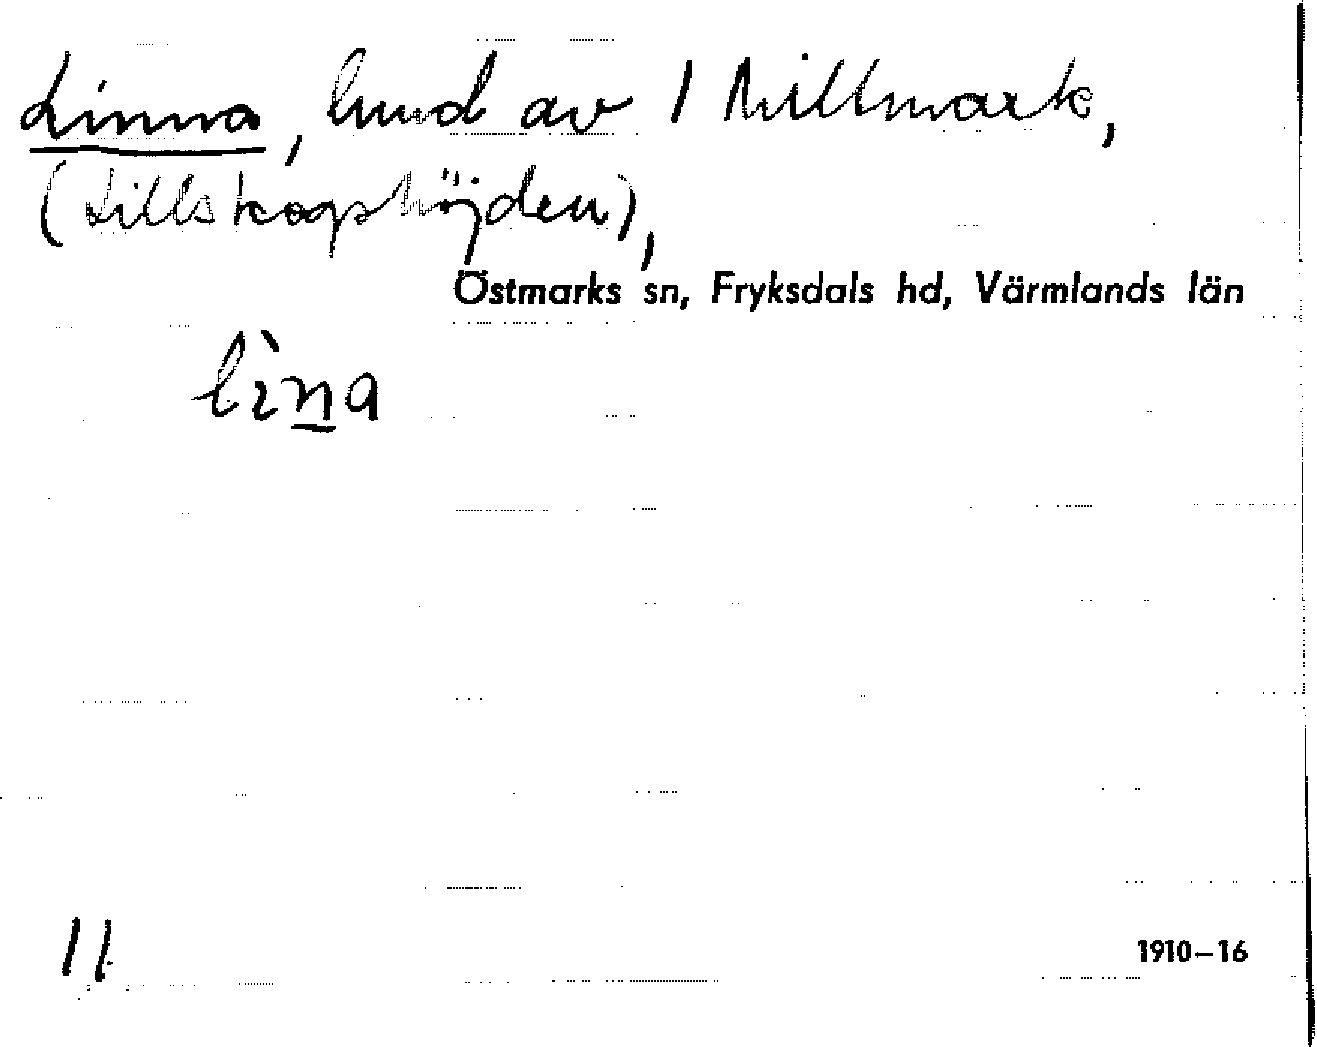 Linna, hemd av 1 Millmark,
(Lillskogshöjden),
Östmarks sn, Fryksdals hd, Värmlands län
lìna
11
1910–16